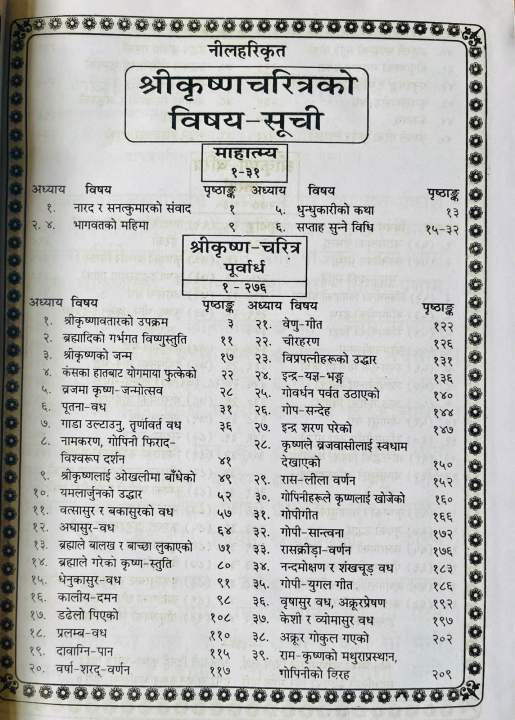 नीलहरिकृत
श्रीकृष्णचरित्रको
विषय-सूची
माहात्म्य
१-३१
अध्याय विषय पृष्ठाङ्क
१. नारद र सनत्कुमारको संवाद १
२. ४. भागवतको महिमा ९
अध्याय विषय पृष्ठाङ्क
५. धुन्धुकारीको कथा १३
६. सप्ताह सुन्ने विधि १५-३२
श्रीकृष्ण-चरित्र
पूर्वार्ध
१ - २७६
अध्याय विषय पृष्ठाङ्क
१. श्रीकृष्णावतारको उपक्रम ३
२. ब्रह्मादिको गर्भगत विष्णुस्तुति ११
३. श्रीकृष्णको जन्म १७
४. कंसका हातबाट योगमाया फुत्केको २२
५. व्रजमा कृष्ण-जन्मोत्सव २८
६. पूतना-वध ३१
७. गाडा उल्टाउनु, तृर्णावर्त वध ३६
८. नामकरण, गोपिनी फिराद-
विश्वरूप दर्शन ४१
९. श्रीकृष्णलाई ओखलीमा बाँधेको ४९
१०. यमलार्जुनको उद्धार ५२
११. वत्सासुर र बकासुरको वध ५७
१२. अघासुर-वध ६४
१३. ब्रह्माले बालख र बाच्छा लुकाएको ७१
१४. ब्रह्माले गरेको कृष्ण-स्तुति ८०
१५. धेनुकासुर-वध ९१
१६. कालीय-दमन ९८
१७. डढेलो पिएको १०८
१८. प्रलम्ब-वध ११०
१९. दावाग्नि-पान ११५
२०. वर्षा-शरद्-वर्णन ११७
अध्याय विषय पृष्ठाङ्क
२१. वेणु-गीत १२२
२२. चीरहरण १२६
२३. विप्रपत्नीहरूको उद्धार १३१
२४. इन्द्र-यज्ञ-भङ्ग १३६
२५. गोवर्धन पर्वत उठाएको १४०
२६. गोप-सन्देह १४४
२७. इन्द्र शरण परेको १४७
२८. कृष्णले ब्रजवासीलाई स्वधाम
देखाएको १५०
२९. रास-लीला वर्णन १५२
३०. गोपिनीहरूले कृष्णलाई खोजेको १६०
३१. गोपीगीत १६६
३२. गोपी-सान्त्वना १७२
३३. रासक्रीडा-वर्णन १७६
३४. नन्दमोक्षण र शंखचूड वध १८३
३५. गोपी-युगल गीत १८६
३६. वृषासुर वध, अक्रूरप्रेषण १९२
३७. केशी र व्योमासुर वध १९७
३८. अक्रूर गोकुल गएको २०२
३९. राम-कृष्णको मथुराप्रस्थान,
गोपिनीको विरह २०९